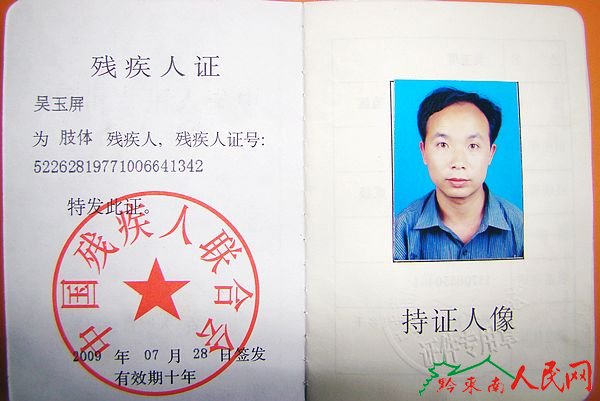 残疾人证
吴玉屏
为 肢体 残疾人，残疾人证号：
52262819771006641342
特发此证。
中国残疾人联合会
2009 年 07 月 28 日签发
有效期十年
持证人像
黔东南人民网